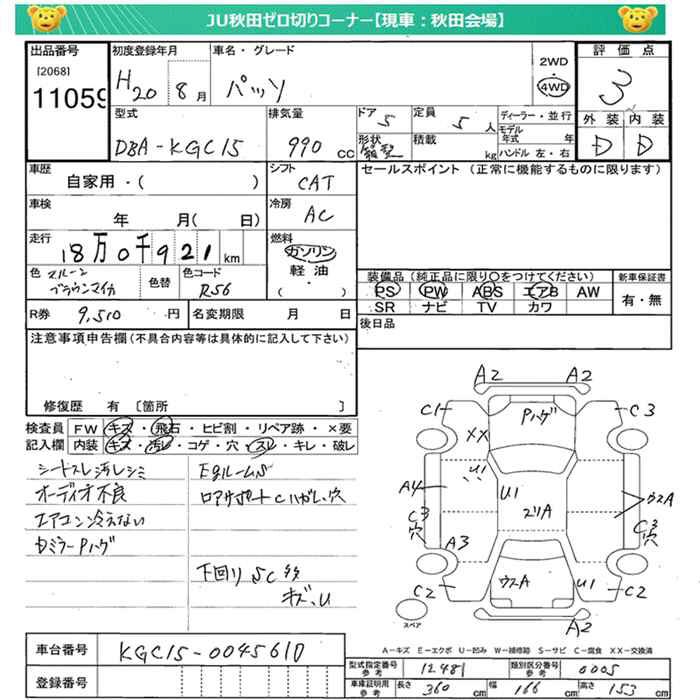 JU秋田ゼロ切りコーナー【現車：秋田会場】
出品番号
[2068]
11059
初度登録年月
H20 8月
車名・グレード
パッソ
2WD
4WD
評価点
3
外装 内装
D D
型式
DBA-KGC15
排気量
990 cc
ドア
5
形状
定員
5 人
積載
kg
ディーラー・並行
モデル年式 年
ハンドル 左・右
車歴
自家用・( )
シフト
CAT
車検
年 月( 日)
冷房
AC
走行
18万0千921km
燃料
ガソリン
軽油
( ・ )
色
ブラウンマイカ
色替
色コード
R56
R券 9,510 円
名変期限 月 日
セールスポイント（正常に機能するものに限ります）
装備品（純正品に限り〇をつけてください）
PS PW ABS エアB AW
SR ナビ TV カワ
新車保証書
有・無
後日品
注意事項申告欄（不具合内容等は具体的に記入して下さい）
修復歴 有 〔箇所 〕
検査員記入欄
FW キズ・飛石・ヒビ割・リペア跡・×要
内装 キズ・汚レ・コゲ・穴・スレ・キレ・破レ
シートスレ汚レシミ
オーディオ不良
エアコン冷えない
カミラーPハゲ
EgルームS
ロアサポートCハガレ、穴
下回りSC多々
キズ、U
A2 A2
C1 Pハゲ C3
XX
U1
A4 U1 ズリA ウスA
C3穴 C3穴
A3
C2 ウスA U1 C2
A2
スペア
A-キズ E-エクボ U-凹み W-補修箇 S-サビ C-腐食 XX-交換済
車台番号 KGC15-0045610
登録番号
型式指定番号 参考 12481
類別区分番号 参考 0005
車庫証明用 参考 長さ 360 cm 幅 166 cm 高さ 153 cm